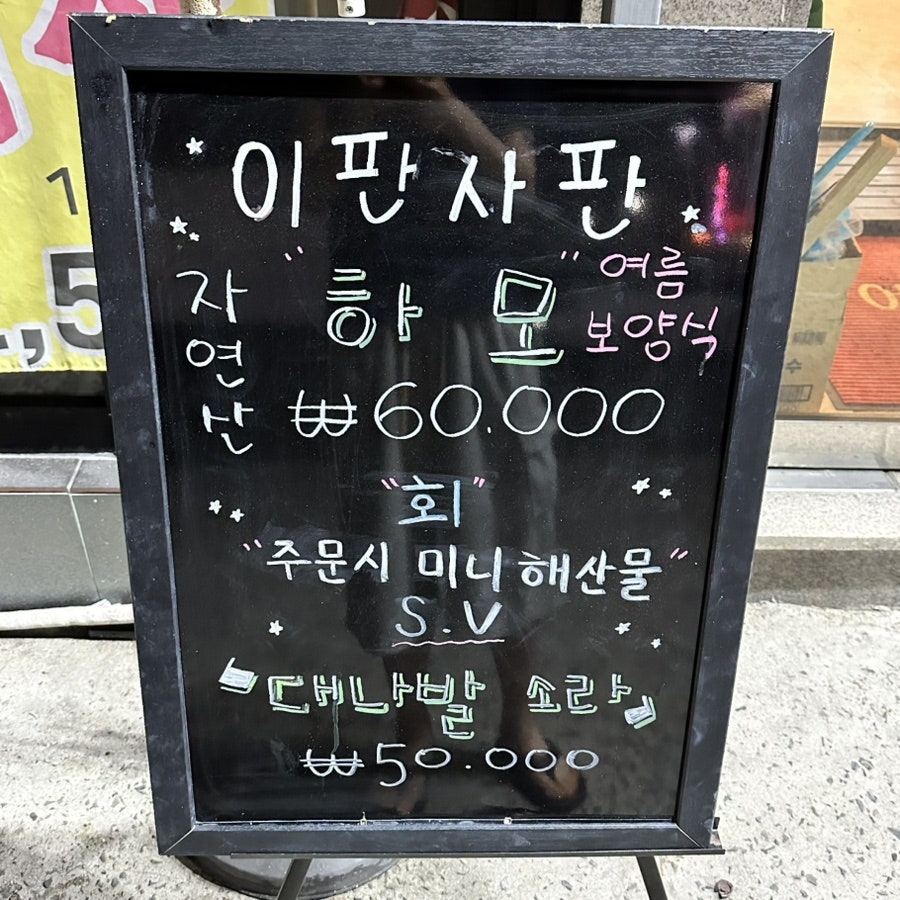 이판사판
자연산 "하모" 여름 보양식
₩60.000
"회"
"주문시 미니 해산물"
S.V
대나발 소라
₩50.000